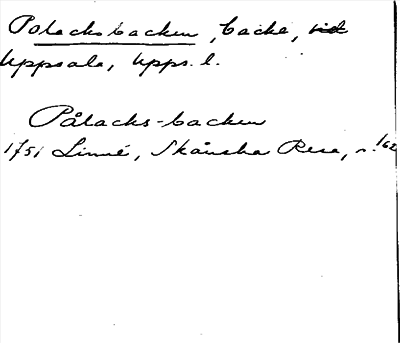 Polacksbacken, backe, vid
Uppsala, Upps. l.
Pålacks-backen
1751 Linné, Skånska Resa,